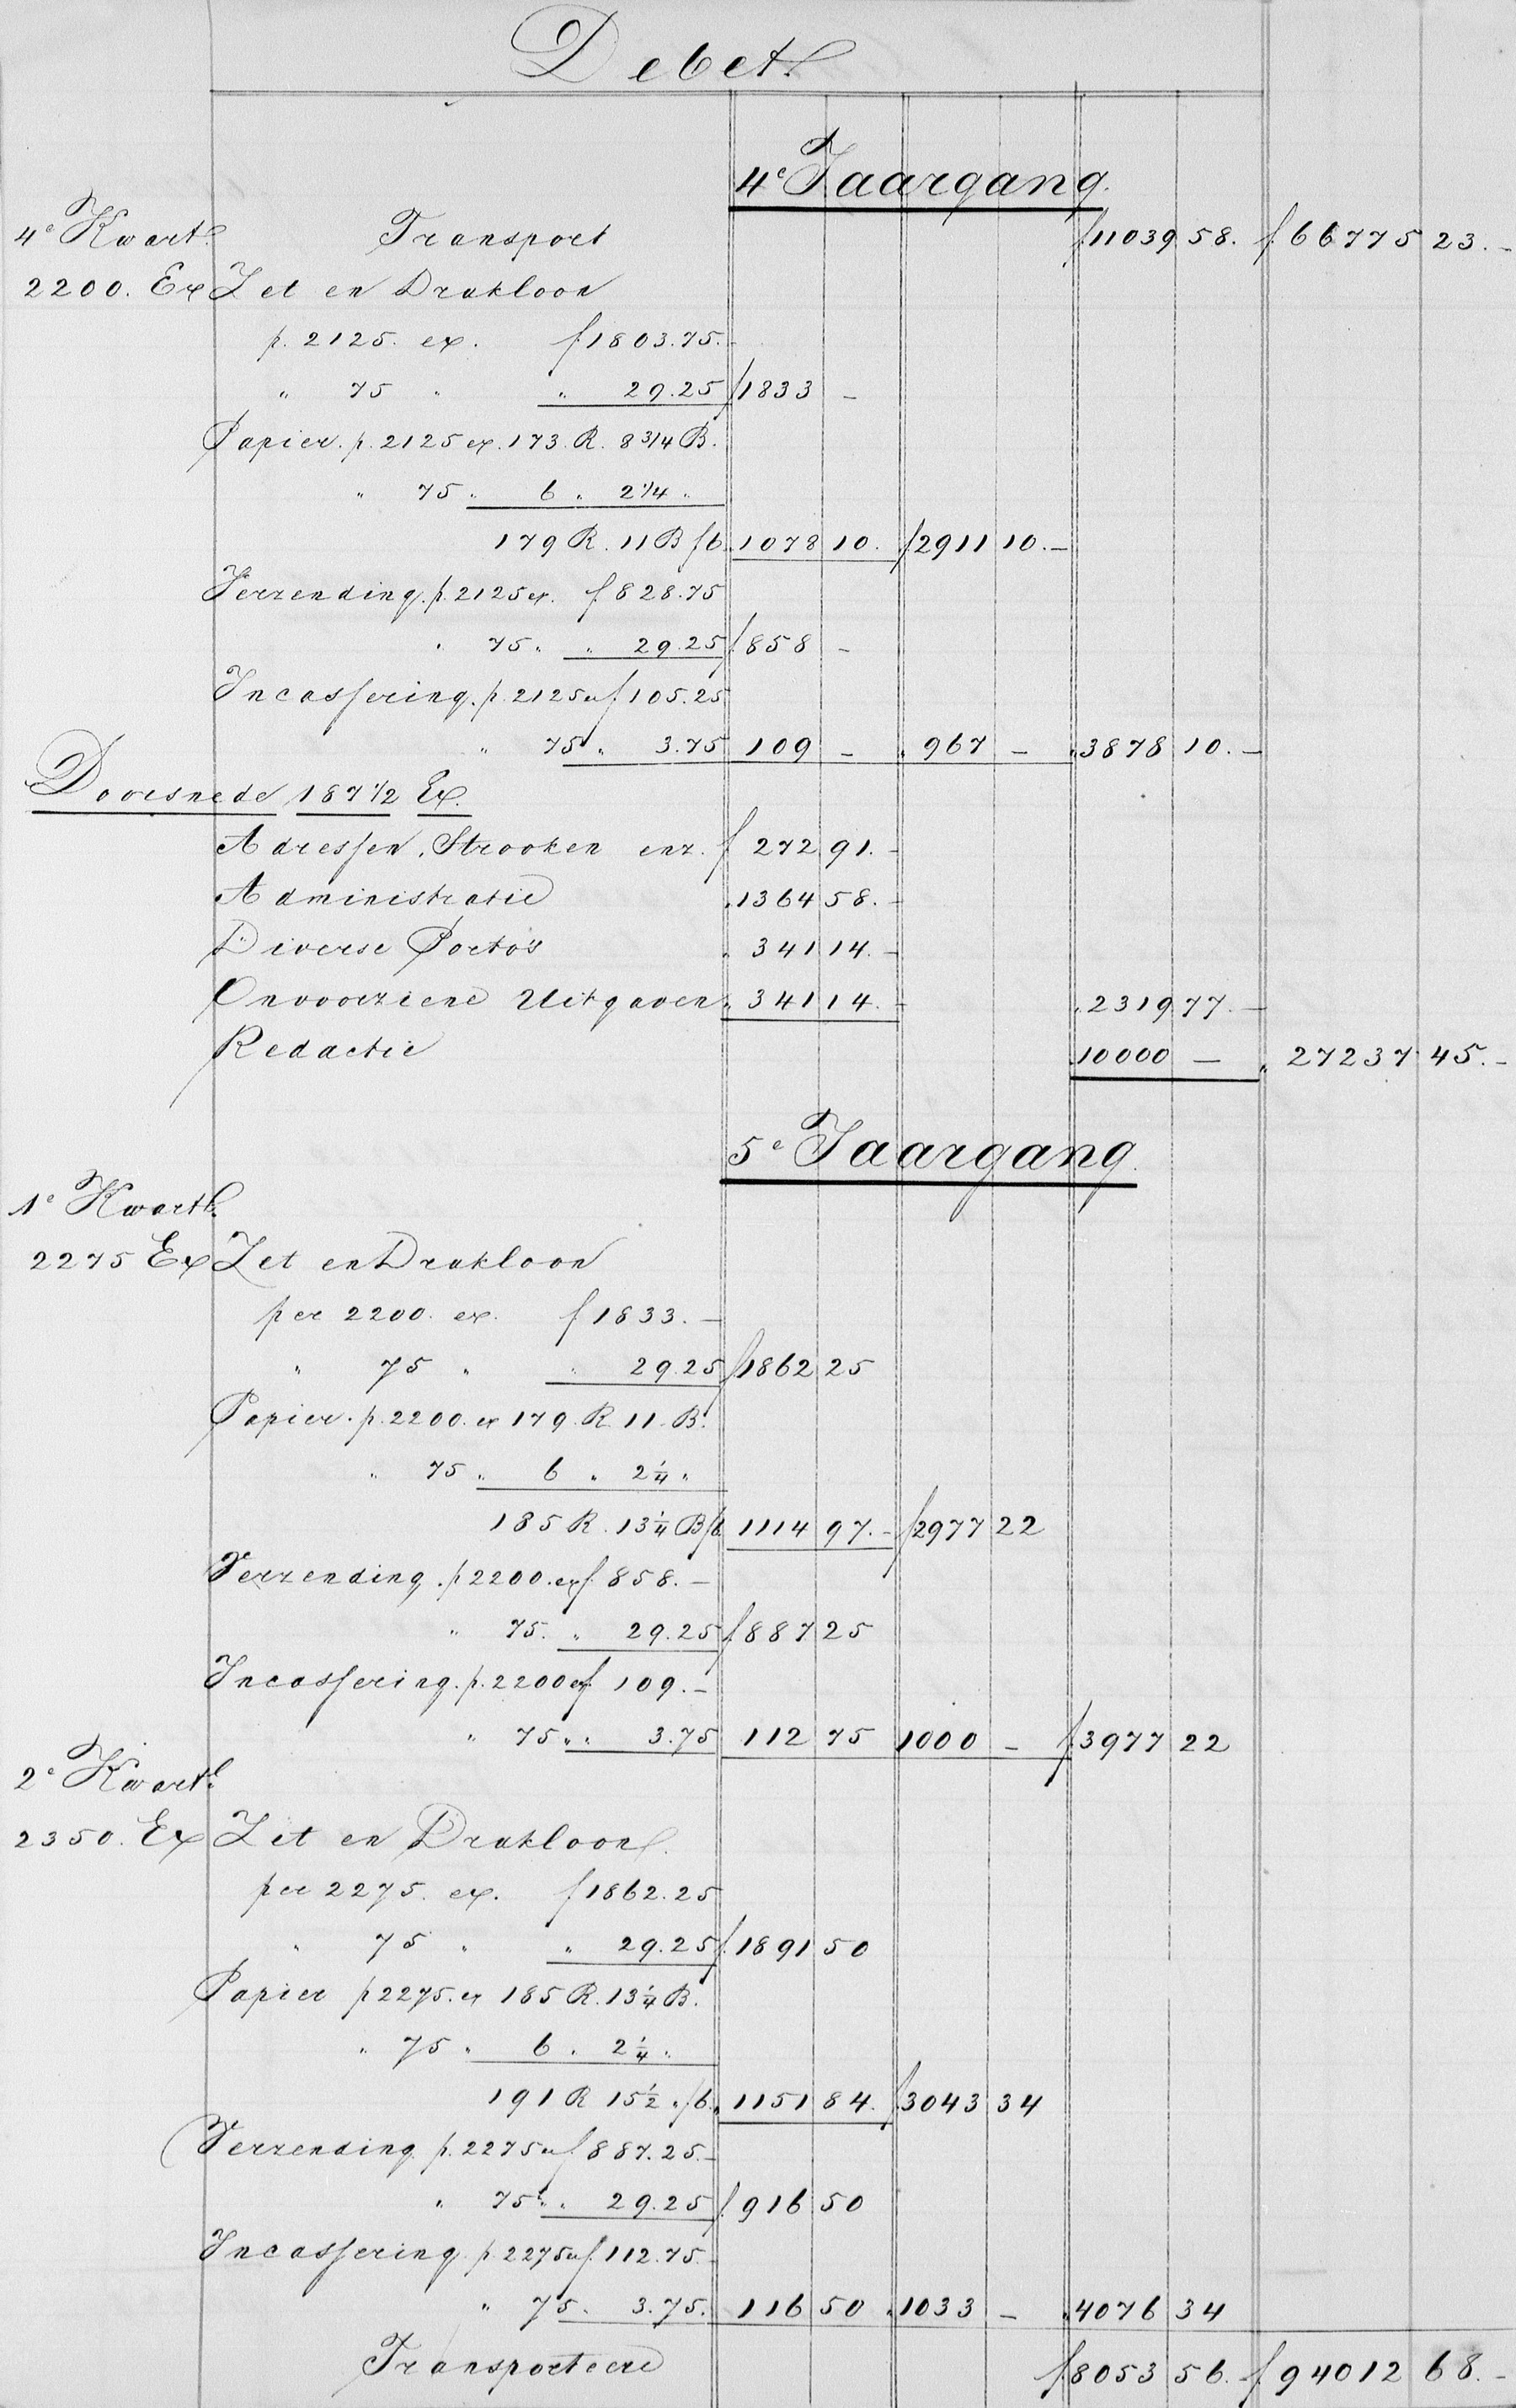 Debet
4e Jaargang.
4e Kwartl. Transport f 11039 58. f 66775 23.-
2200. Ex Zet en Drukloon
p. 2125. ex. f 1803.75.-
" 75 " " 29.25 f 1833 -
Papier. p. 2125 ex. 173. R. 8 3/4 B.
" 75 " 6 " 2 1/4 "
179 R. 11 B f 6. 1078 10. f 2911 10.-
Verzending. p. 2125 ex. f 828.75
" 75 " " 29.25 f 858 -
Incassering. p. 2125 ex f 105.25
" 75 " 3.75 109 - " 967 - " 3878 10.-
Doorsnede 187 1/2 Ex.
Adressen, Strooken enz. f 272 91.-
Administratie " 1364 58.-
Diverse Porto's " 341 14.-
Onvoorziene Uitgaven " 341 14.- " 2319 77.-
Redactie " 10000 - " 27237 45.-
5e Jaargang.
1e Kwartl.
2275 Ex Zet en Drukloon
per 2200. ex. f 1833.-
" 75 " " 29.25 f 1862 25
Papier. p. 2200. ex 179. R. 11. B.
" 75 " 6 " 2 1/4 "
185 R. 13 1/4 B f 6 1114 97.- f 2977 22
Verzending. p 2200. ex f 858.-
" 75. " 29.25 f 887 25
Incassering. p. 2200 ex f 109.-
" 75 " " 3.75 112 75 1000 - f 3977 22
2e Kwartl.
2350. Ex Zet en Drukloon.
per 2275. ex. f 1862.25
" 75 " " 29.25 f 1891 50
Papier p 2275. ex 185 R. 13 1/4 B.
" 75 " 6 " 2 1/4 "
191 R 15 1/2 " f 6. " 1151 84. f 3043 34
Verzending p. 2275 ex f 887.25.-
" 75 " " 29.25 f 916 50
Incassering p. 2275 ex f 112.75.-
" 75 " 3.75. 116 50 " 1033 - " 4076 34
Transporteere f 8053 56. f 94012 68.-